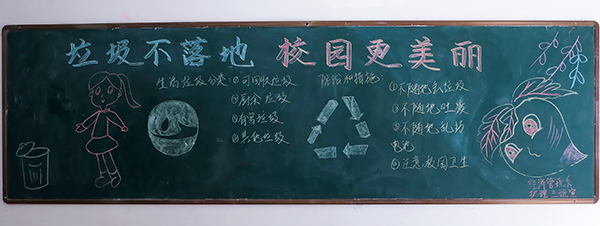 垃圾不落地 校园更美丽
生活垃圾分类:①可回收垃圾
②厨余垃圾
③有害垃圾
④其他垃圾
防治和措施:
①不随地丢垃圾
②不随地吐痰
③不随地乱扔
电池
④注意校园卫生
经济管理系